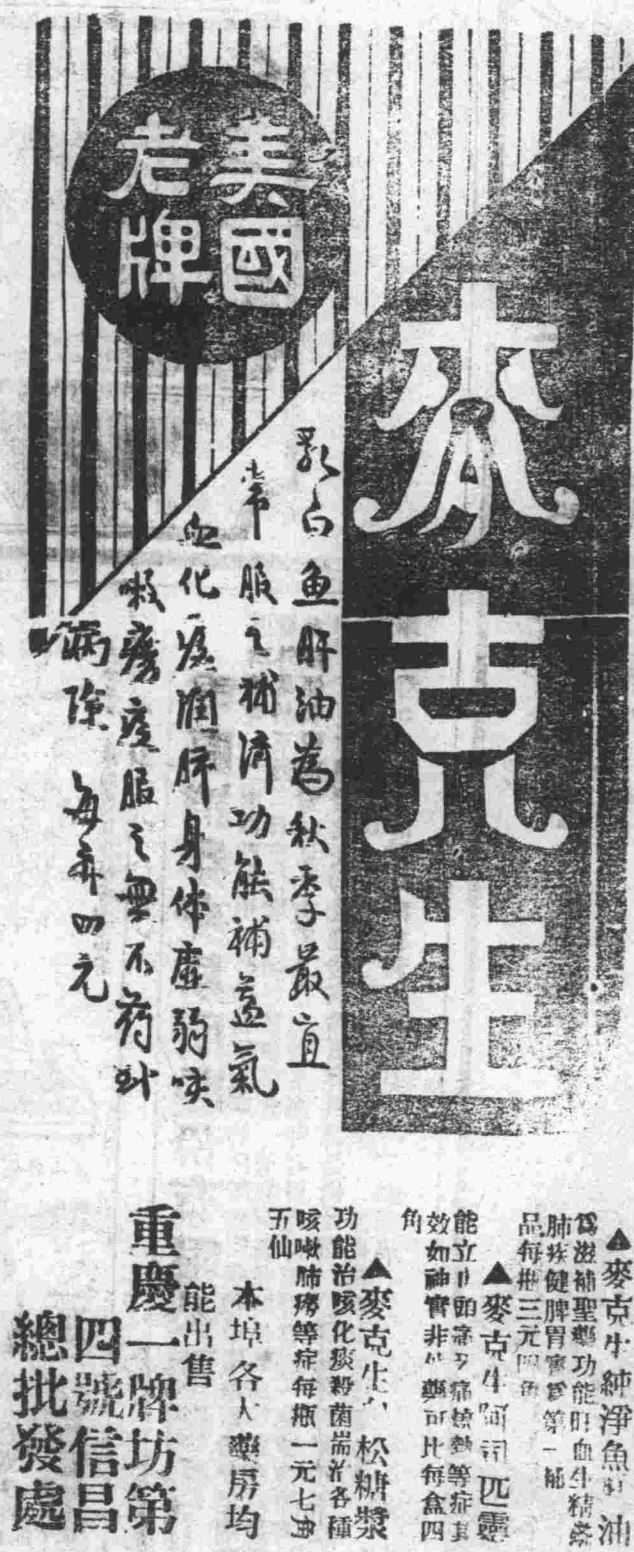 美國
老牌
麥克生
乳白魚肝油為秋季最宜
常服之補濟功能補益氣
血化痰潤肺身体虛弱咳
嗽癆疫服之無不药到
病除 每瓶四元
▲麥克生純淨魚肝油
為滋補聖藥功能壯血生精療
肺疾健脾胃實爲第一補
品每瓶三元四角
▲麥克生阿司匹靈
能立止頭痛牙痛燒熱等症其
效如神實非他藥可比每盒四
角
▲麥克生 松糖漿
功能治咳化痰殺菌耑治各種
咳嗽肺癆等症每瓶一元七角
五仙
本埠各大藥房均
能出售
重慶一牌坊第
四號信昌
總批發處